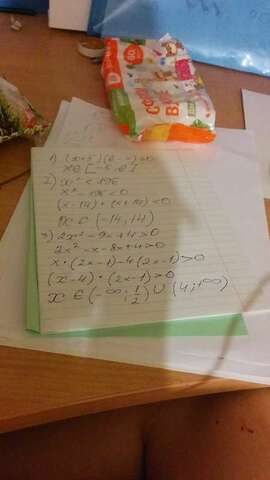 1) (x+5)(6-x)≥0
x∈[-5;6]
2) x²<196
x²-196<0
(x-14)*(x+14)<0
x∈(-14;14)
3) 2x²-9x+4>0
2x²-x-8x+4>0
x*(2x-1)-4(2x-1)>0
(x-4)*(2x-1)>0
x∈(-∞;1/2)∪(4;+∞)